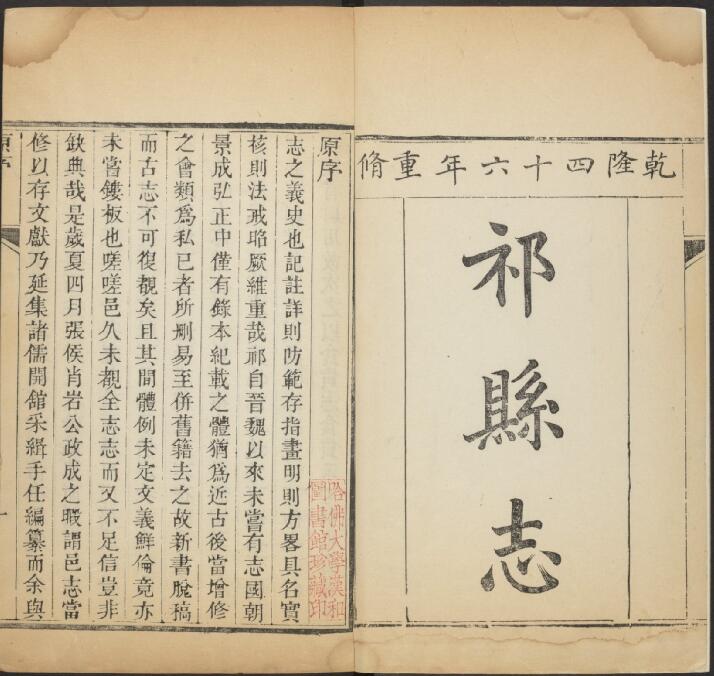 乾隆四十六年重脩
祁縣志
原序
志之義史也記註詳則防範存指畫明則方畧具名實
核則法戒昭厥維重哉祁自晉魏以來未嘗有志國朝
景成弘正中僅有錄本紀載之體猶爲近古後當增修
之會類爲私已者所刪易至併舊籍去之故新書脫稿
而古志不可復覩矣且其間體例未定文義鮮倫竟亦
未當鏤板也嗟嗟邑久未覩全志志而又不足信豈非
缺典哉是歲夏四月張侯肖岩公政成之暇謂邑志當
修以存文獻乃延集諸儒開舘采緝手任編纂而余與
哈佛大學漢和
圖書館珍藏印
原序